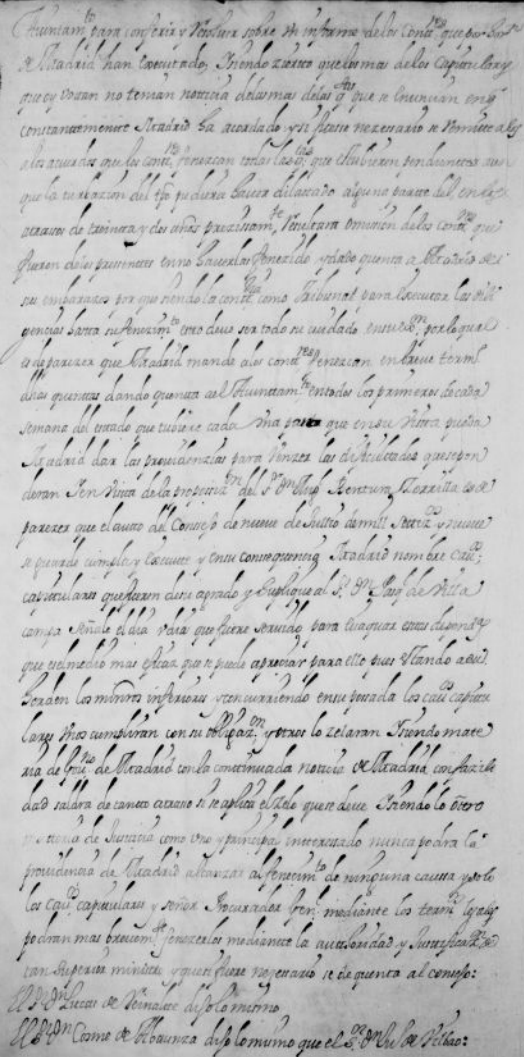 Ayuntam.to para conferir y Resolver sobre el informe de los Cont.res que por
de Madrid han executado, Siendo zierto que los mas de los Capitulares
que oy votan no tenian noticia de las mas de las q.tas que se enunzian en q.
constantemente Madrid ha acordado y si fuere nezesario se remite a
a los acuerdos que los cont.res fenezcan todas las q.tas que estubieren pendientes aun
que la turbazion del tpo pudiera haver dilattado alguna parte del en los
atrasos de treinta y dos años prezisam.te Resultara omision de los cont.res que
fueron de los presentes en no haverlas fenezido y dado quenta a Madrid de
sus embarazos por que siendo la cont.ria como Tribunal para executar las dili
gencias hasta su fenezim.to esto deve ser todo su cuidado en su por lo qual
es de parezer que Madrid mande a los cont.res fenezcan en breve term.o
dhas quentas dando quenta a el Ayuntam.to en todos los primeros de cada
semana del estado que tubiere cada una para que en su vista pueda
Madrid dar las providenzias para venzer las dificultades que se pon
deran Y en vista de la proposiz.on del S.r D.n Ventura Morrilla es de
parezer que el auto del Consejo de nueve de Jullio de mill settez.os y nueve
se guarde cumpla y execute y en su consequencia Madrid nombre cav.os
capitulares que fueren de su agrado y suplique al S.r D.n de Villa
campa señale el dia o dias que fuere servido para evaquar estas depend.as
que es el medio mas eficaz que se puede apreciar para ello pues estando a su
horden los ministros inferiores y concurriendo en su posada los cav.os capitu
lares unos cumpliran con su obligaz.on y otros lo zelaran Siendo mate
ria de gov.no de Madrid con la continuada noticia de Madrid con fazili
dad saldra de tanto atraso si se aplica el zelo que se deve Y siendo lo otro
materia de Justicia como uno y prinzipal interesado nunca podra la
providencia de Madrid alcanzar al fenezim.to de ninguna causa y solo
los cav.os capitulares y señor Procurador Gen.l mediante los term.os legales
podran mas brevem.te fenezerlos mediante la authoridad y Justificaz.on de
tan superior ministro y que si fuere nezesario se de quenta al consejo:
El S.r D.n Lucas de dijo lo mismo
El S.r D.n Cosme de Abaunza dijo lo mismo que el S.r D.n Luis de Vilbao: